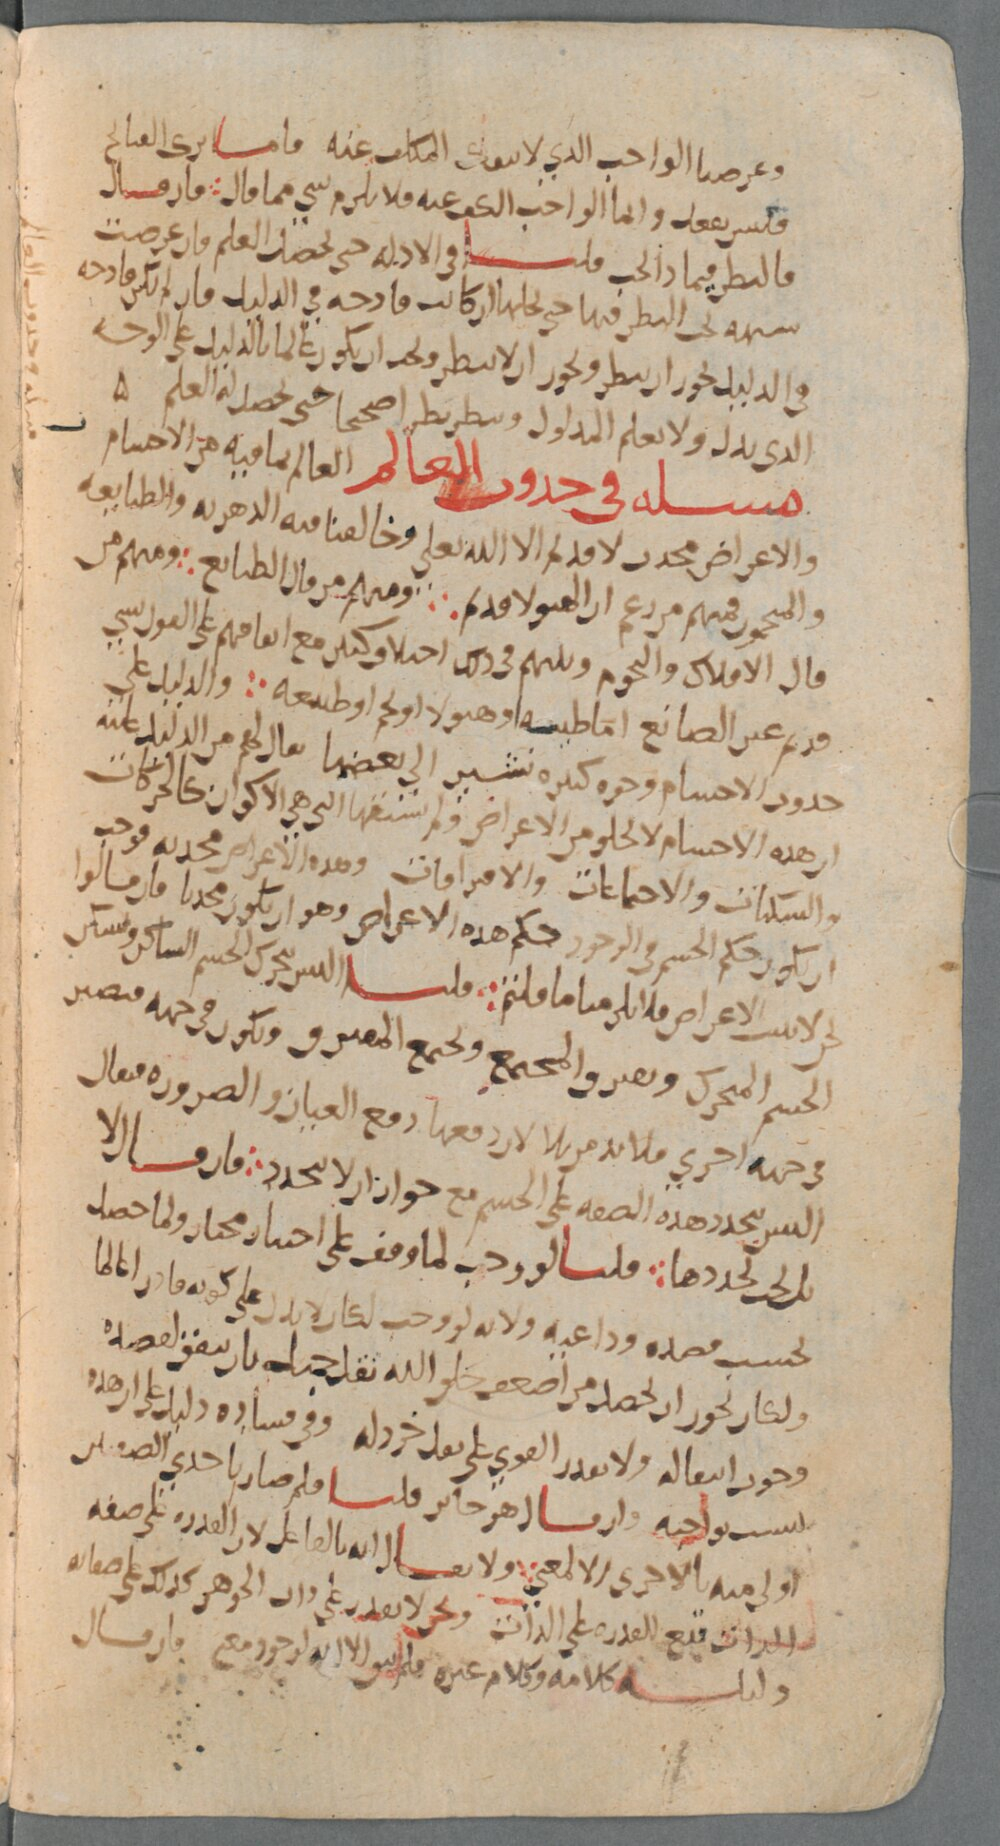 وعرصنا الواحب الذي لا سوى المكلف عنه واما ىرى القىائح
فليس بفعل وانما الواحب الكف عنه فلا يلزم شي مما قال فان قال
فالنظر فيما ذا يجب قلنا في الادلة حتى يحصل العلم فان عرضت
شبهة يجب النظر فيها حتى يحلها ان كانت قادحه في الدليل فان لم تكن قادحه
في الدليل يجوز ان ينظر ويجوز ان لا ينظر ويجب ان يكون عالما بالدليل على الوجه
الذي يدل ولا يعلم المدلول وينظر نظرا صحيحا حتى يحصل له العلم ٥
مسله في حدوث العالم العالم بما فيه من الاجسام
والاعراض محدث لا قديم الا الله تعلى وخالفنا فيه الدهريه والطبايعيه
والمنجمون فمنهم من زعم ان الهيولا قديم ومنهم من قال الطبايع ومنهم من
قال الافلاك والنجوم وبينهم في ذلك اختلاف كثير مع اتفاقهم على القول بشي
قديم غير الصانع اما طينه او هيولا او نجم او طبيعه والدليل على
حدوث الاجسام وجوه كثيره نشير الى بعضها يقال لهم من الدليل عليه
ان هذه الاجسام لا تخلو من الاعراض ولم تسبقها التي هي الاكوان كالحركات
والسكنات والاجتماعات والافتراقات وهذه الاعراض محدثه فوجب
ان يكون حكم الجسم في الوجود حكم هذه الاعراض وهو ان يكون محدثا فان قالوا
نحن لا نثبت الاعراض فلا يلزمنا ما قلتم قلنا اليس يتحرك الجسم الساكن ويسكن
الجسم المتحرك ويفترق المجتمع ويجتمع المفترق ويكون في جهه فيصير
في جهه اخري فلا بد من بلا لان دفعها دفع العيان والضروره فيقال
اليس تجدد هذه الصفه على الجسم مع جواز ان لا تتجدد فان قال لا
بل يجب تجددها قلنا لو وجب لما وقف على اختيار مختار ولما حصل
بحسب قصده وداعيه ولانه لو وجب لكان لا يدل على كونه قادرا عالما
ولكان يجوز ان يحصل من اضعف خلق الله نقل جبل بان يتفق لقصده
وجوب انتقاله ولا يقدر القوي على نقل خردله وفي فساده دليل على ان هذه
ليست بواجبه وان قال هو جائز قلنا فلم صار باحدي الصفتين
اولى منه بالاخرى الا لمعني ولا يقال انه بالفاعل لان القدره على صفه
الذات تتبع القدره على الذات ونحن لا نقدر على ذات الجوهر كذلك على صفاته
دليله كلامه وكلام غيره فلم يبق الا انه لوجود معنى فان قال